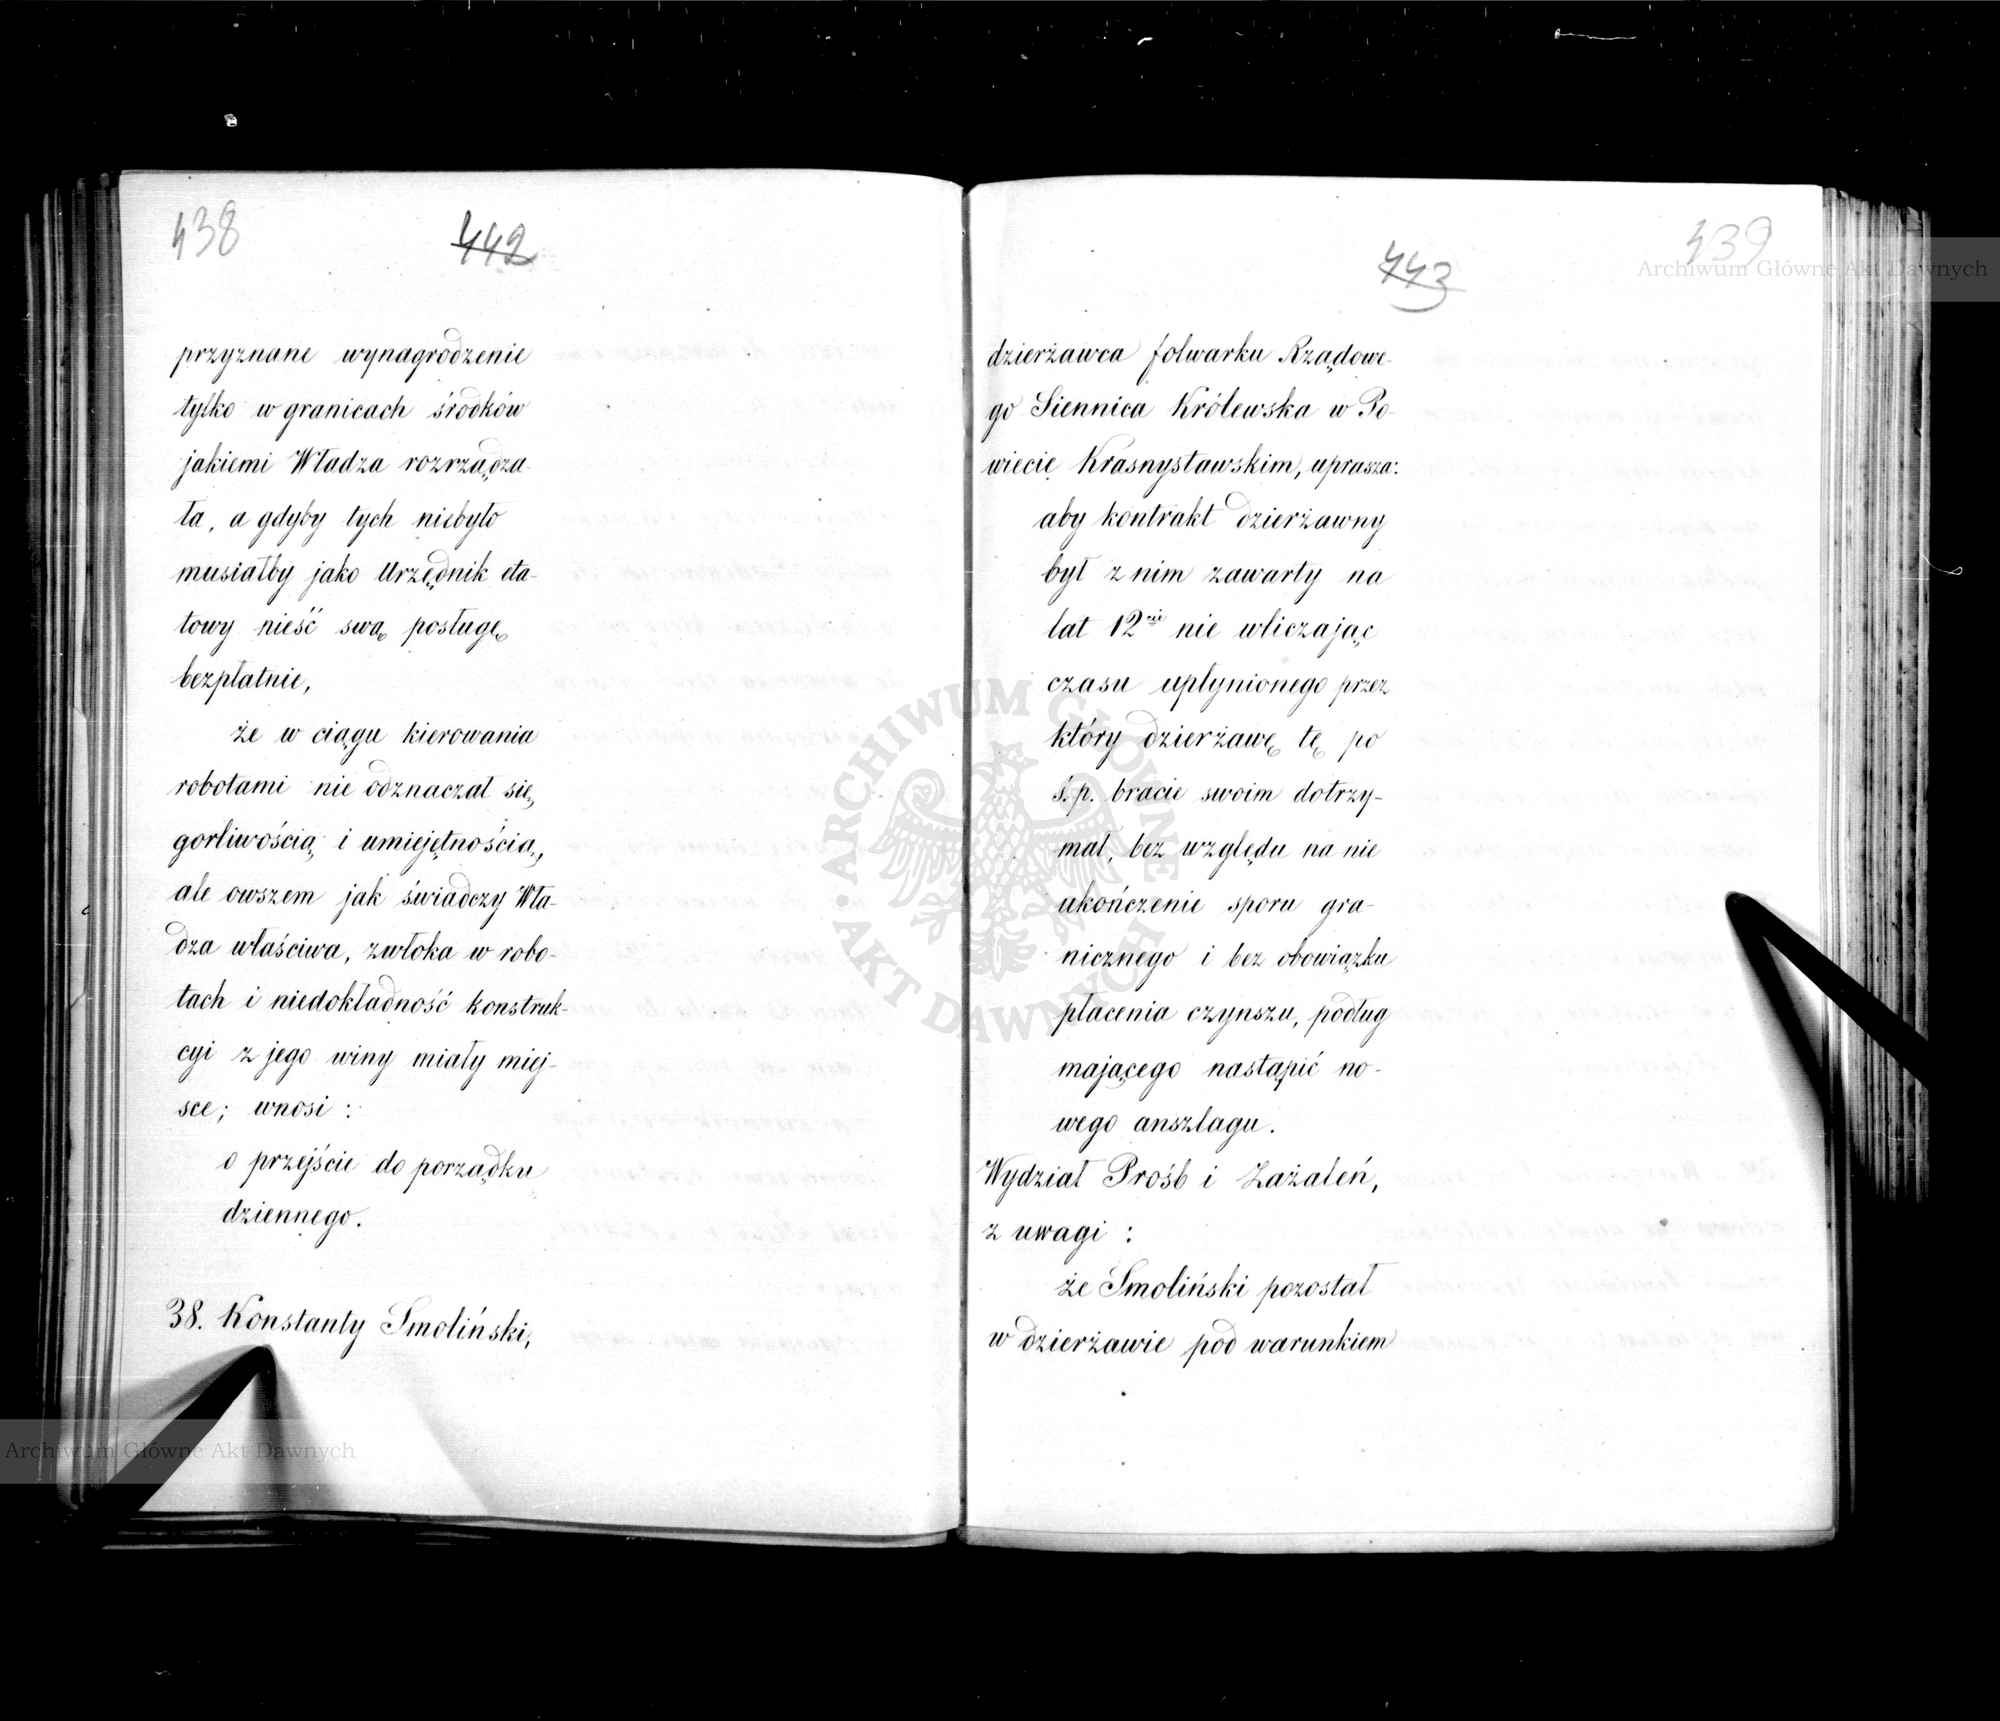 438
442
przyznane wynagrodzenie
tylko w granicach środków
jakiemi Władza rozrządza-
ła, a gdyby tych niebyło
musiałby jako Urzędnik eta-
towy nieść swą posługę
bezpłatnie,
że w ciągu kierowania
robotami nie odznaczał się,
gorliwością i umiejętnością,
ale owszem jak świadczy Wła-
dza właściwa, zwłoka w robo-
tach i niedokładność konstruk-
cyi z jego winy miały miej-
sce; wnosi:
o przejście do porządku
dziennego.
38. Konstanty Smoliński,
439
443
dzierżawca folwarku Rządowe-
go Siennica Królewska w Po-
wiecie Krasnystawskim, uprasza:
aby kontrakt dzierżawny
był z nim zawarty na
lat 12 nie wliczając
czasu upłynionego przez
który dzierżawę tę po
ś.p. bracie swoim dotrzy-
mał, bez względu na nie
ukończenie sporu gra-
nicznego i bez obowiązku
płacenia czynszu, podług
mającego nastąpić no-
wego anszlagu.
Wydział Prośb i Zażaleń,
z uwagi:
że Smoliński pozostał
w dzierżawie pod warunkiem
Archiwum Główne Akt Dawnych
ARCHIWUM GŁÓWNE AKT DAWNYCH
Archiwum Główne Akt Dawnych